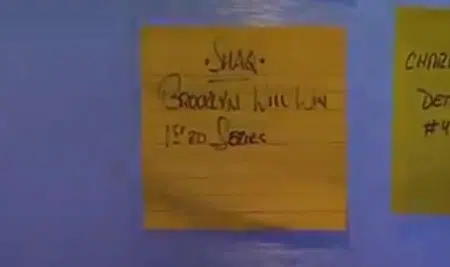 ·SHAQ·
BROOKLYN WILL WIN
1ST RD SERIES
CHAR
DET
#4